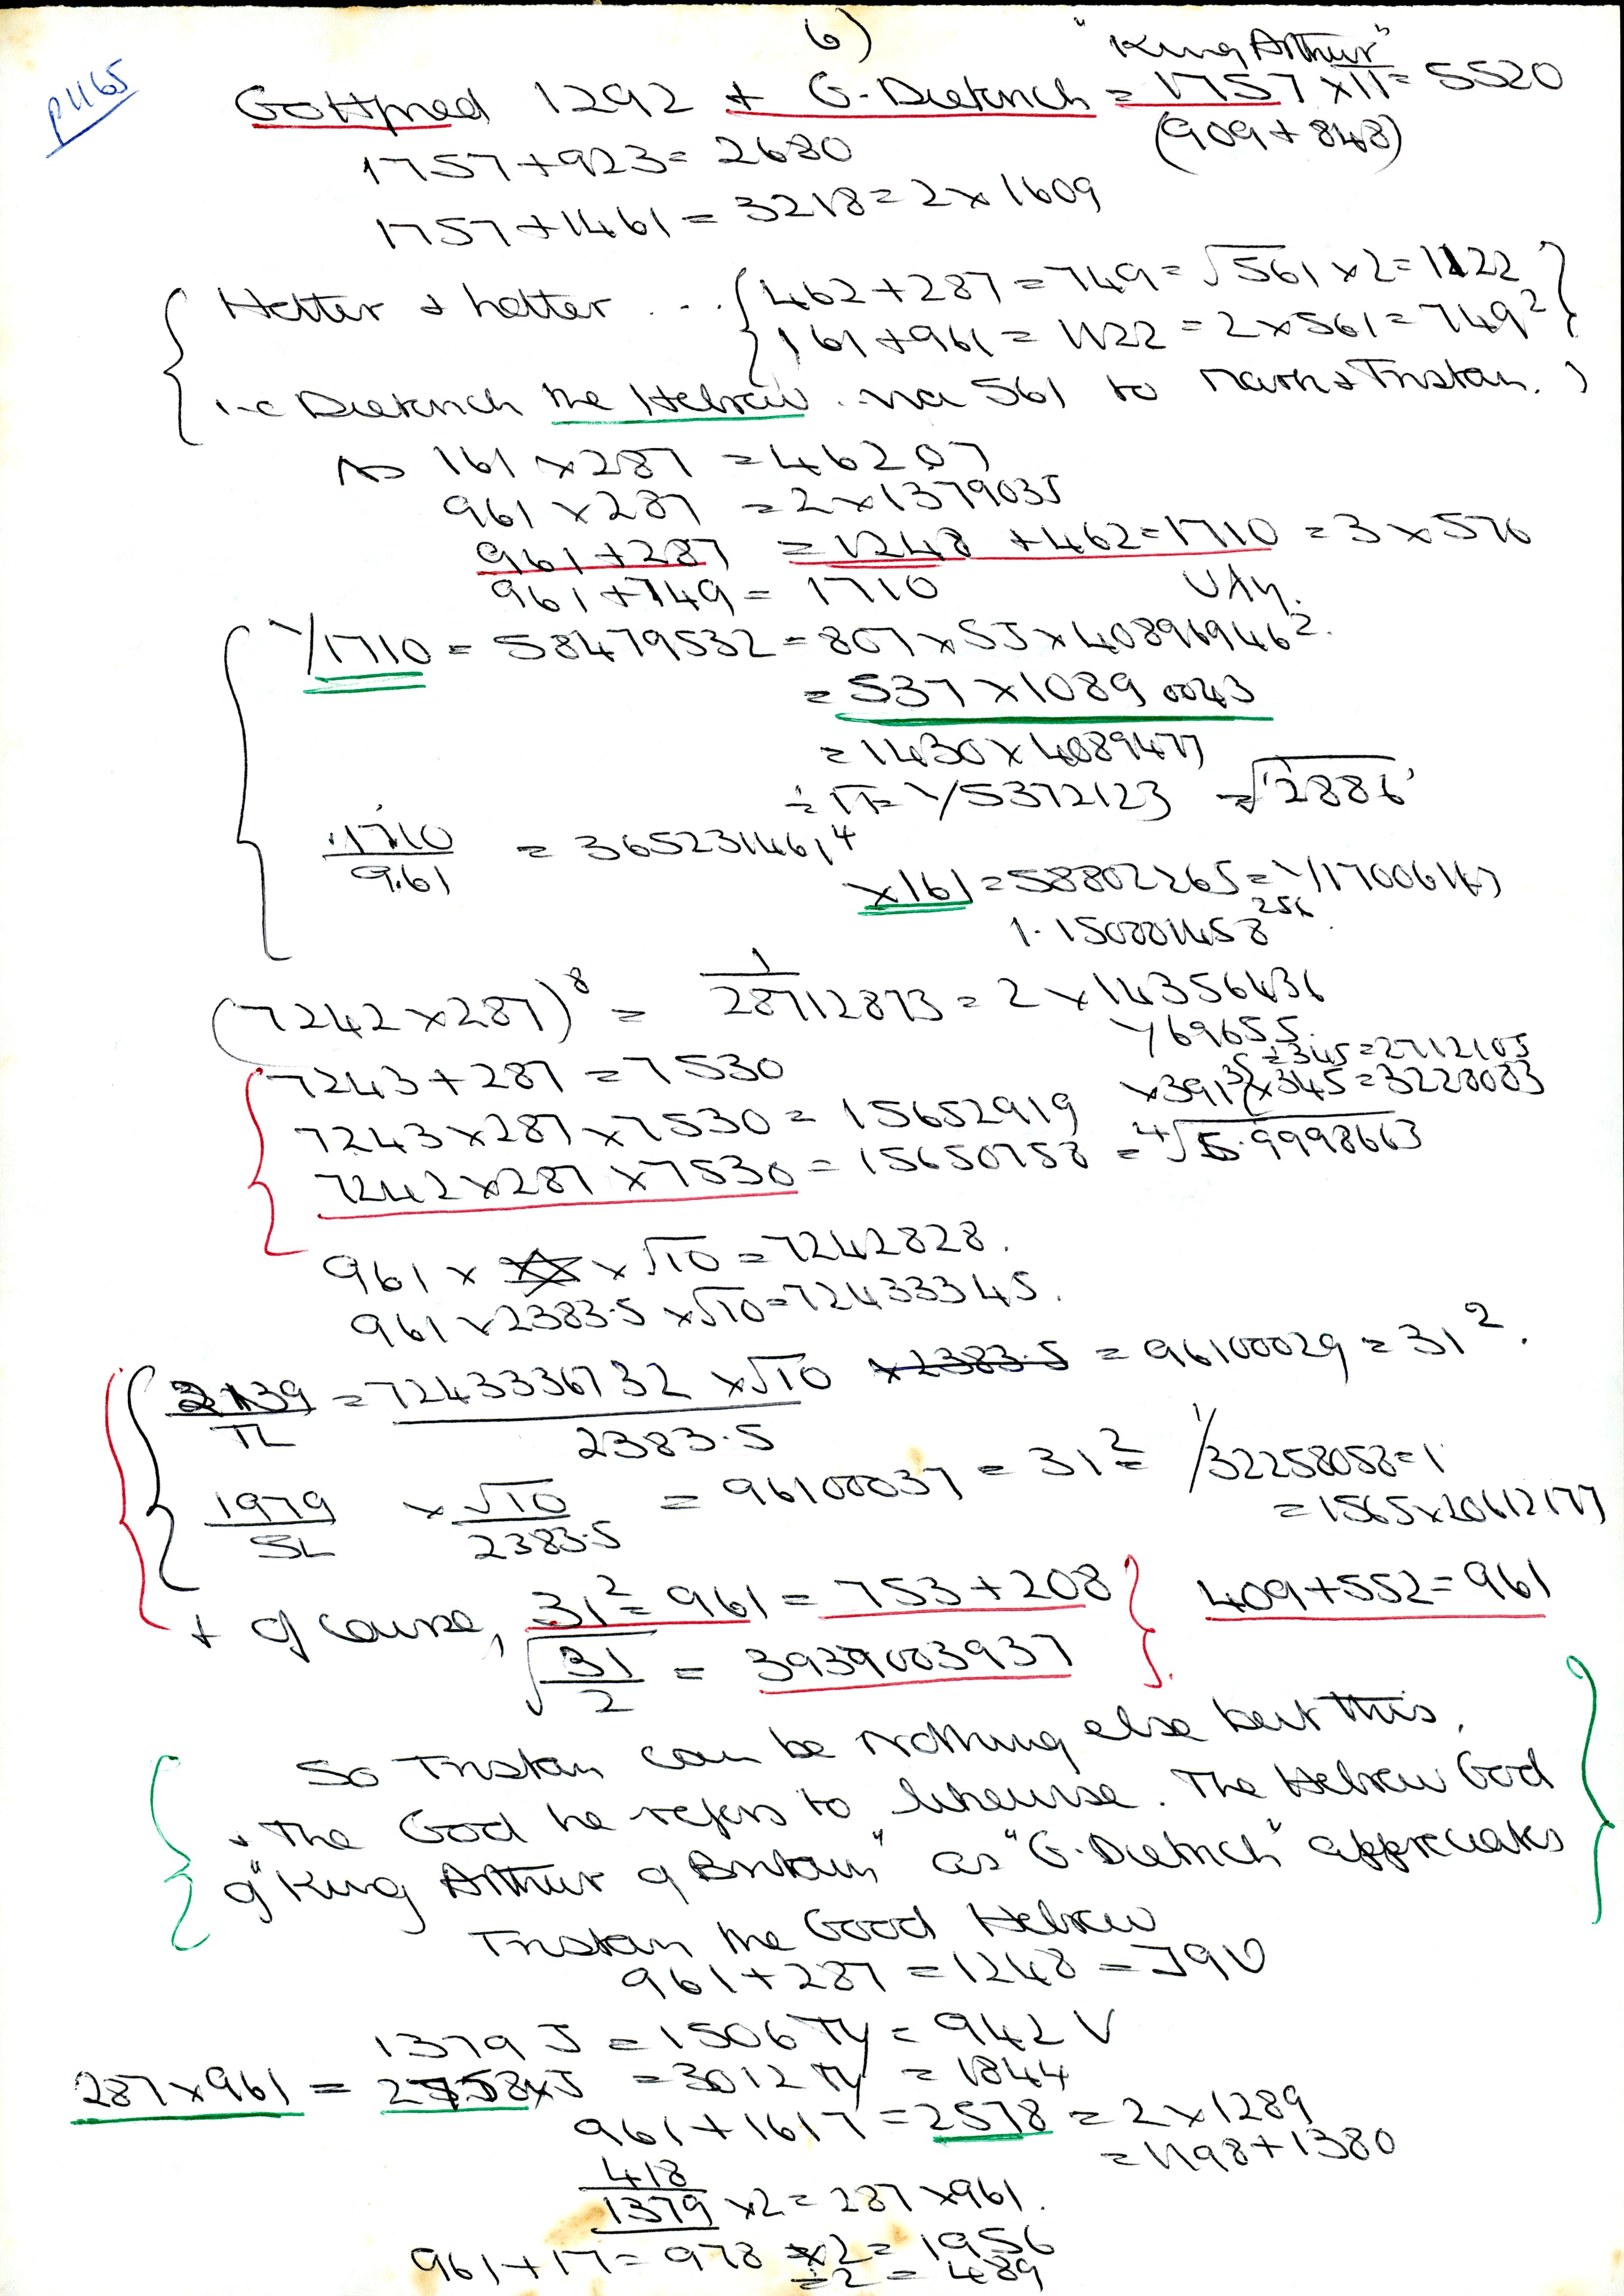 6)
P1165
"King Arthur"
Gottfried 1292 + G. Dietrich = 1757 x 11 = 5520
(909 + 848)
1757 + 923 = 2680
1757 + 1461 = 3218 = 2 x 1609
Hotter & hotter ... { 462 + 287 = 749 = √561 x 2 = 1122
161 + 961 = 1122 = 2 x 561 = 749²
i-e Dietrich the Hebrew. via 561 to Mark & Tristan.
As 161 x 287 = 46207
961 x 287 = 2 x 1379035
961 + 287 = 1248 + 462 = 1710 = 3 x 570
961 + 749 = 1710
1/1710 = 58479532 = 807 x 55 x 40896946²
= 537 x 1089 0043
= 1430 x 4089477
1/5372123 = √2886
1710 / 9.61 = 365231461⁴
x 161 = 58802265 = 1/17006147
1.150001458²⁵⁶
(7242 x 287)⁸ = 1 / 28712873 = 2 x 14356436
1/69655
÷ 345 = 2712105
7243 + 287 = 7530
x 391³² x 345 = 3228083
7243 x 287 x 7530 = 15652919
7242 x 287 x 7530 = 15650758 = ⁴√5.9998663
961 x √10 = 7242828.
961 x 2383.5 x √10 = 72433345.
2139 / TL = 7243336732 x √10 / 2383.5 x 2383.5 = 96100029 = 31².
1979 / SL x √10 / 2383.5 = 96100037 = 31² = 1/32258058 = 1
= 1565 x 20612177
+ of course, 31² = 961 = 753 + 208 } 409 + 552 = 961
√31/2 = 3939003937
So Tristan can be nothing else but this,
& the God he refers to likewise. The Hebrew God
of "King Arthur of Britain" as "G. Dietrich" appreciates
Tristan the Good Hebrew
961 + 287 = 1248 = J9V
1379 J = 1506 Ty = 942 V
287 x 961 = 2758 x J = 3012 Ty = 1844
961 + 1617 = 2578 = 2 x 1289
= 1198 + 1380
418 / 1379 x 2 = 287 x 961.
961 + 17 = 978 x 2 = 1956
÷ 2 = 489